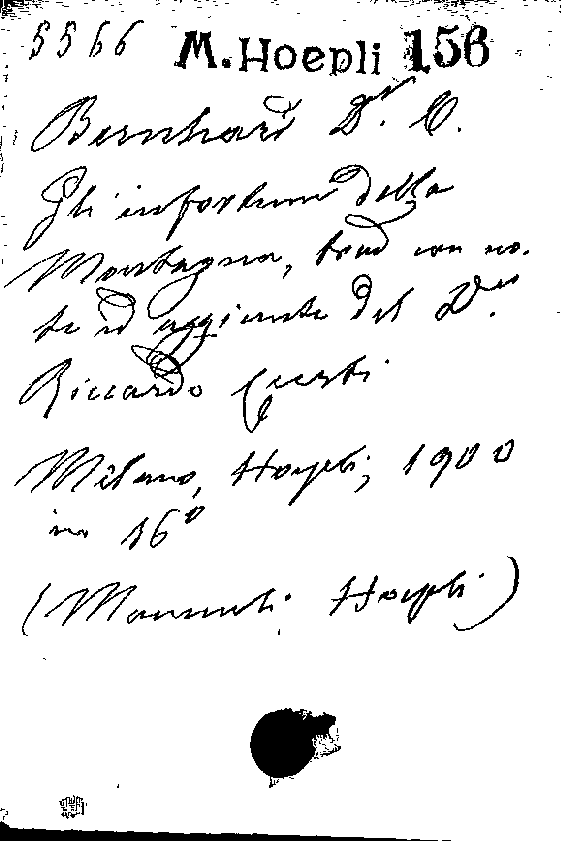 5566 M. Hoepli 156
Bernhard Dr. O.
Gli infortuni della
Montagna, trad con no-
te ed aggiunte del Dr.
Riccardo Curti
Milano, Hoepli, 1900
in 16°
(Manuali Hoepli)